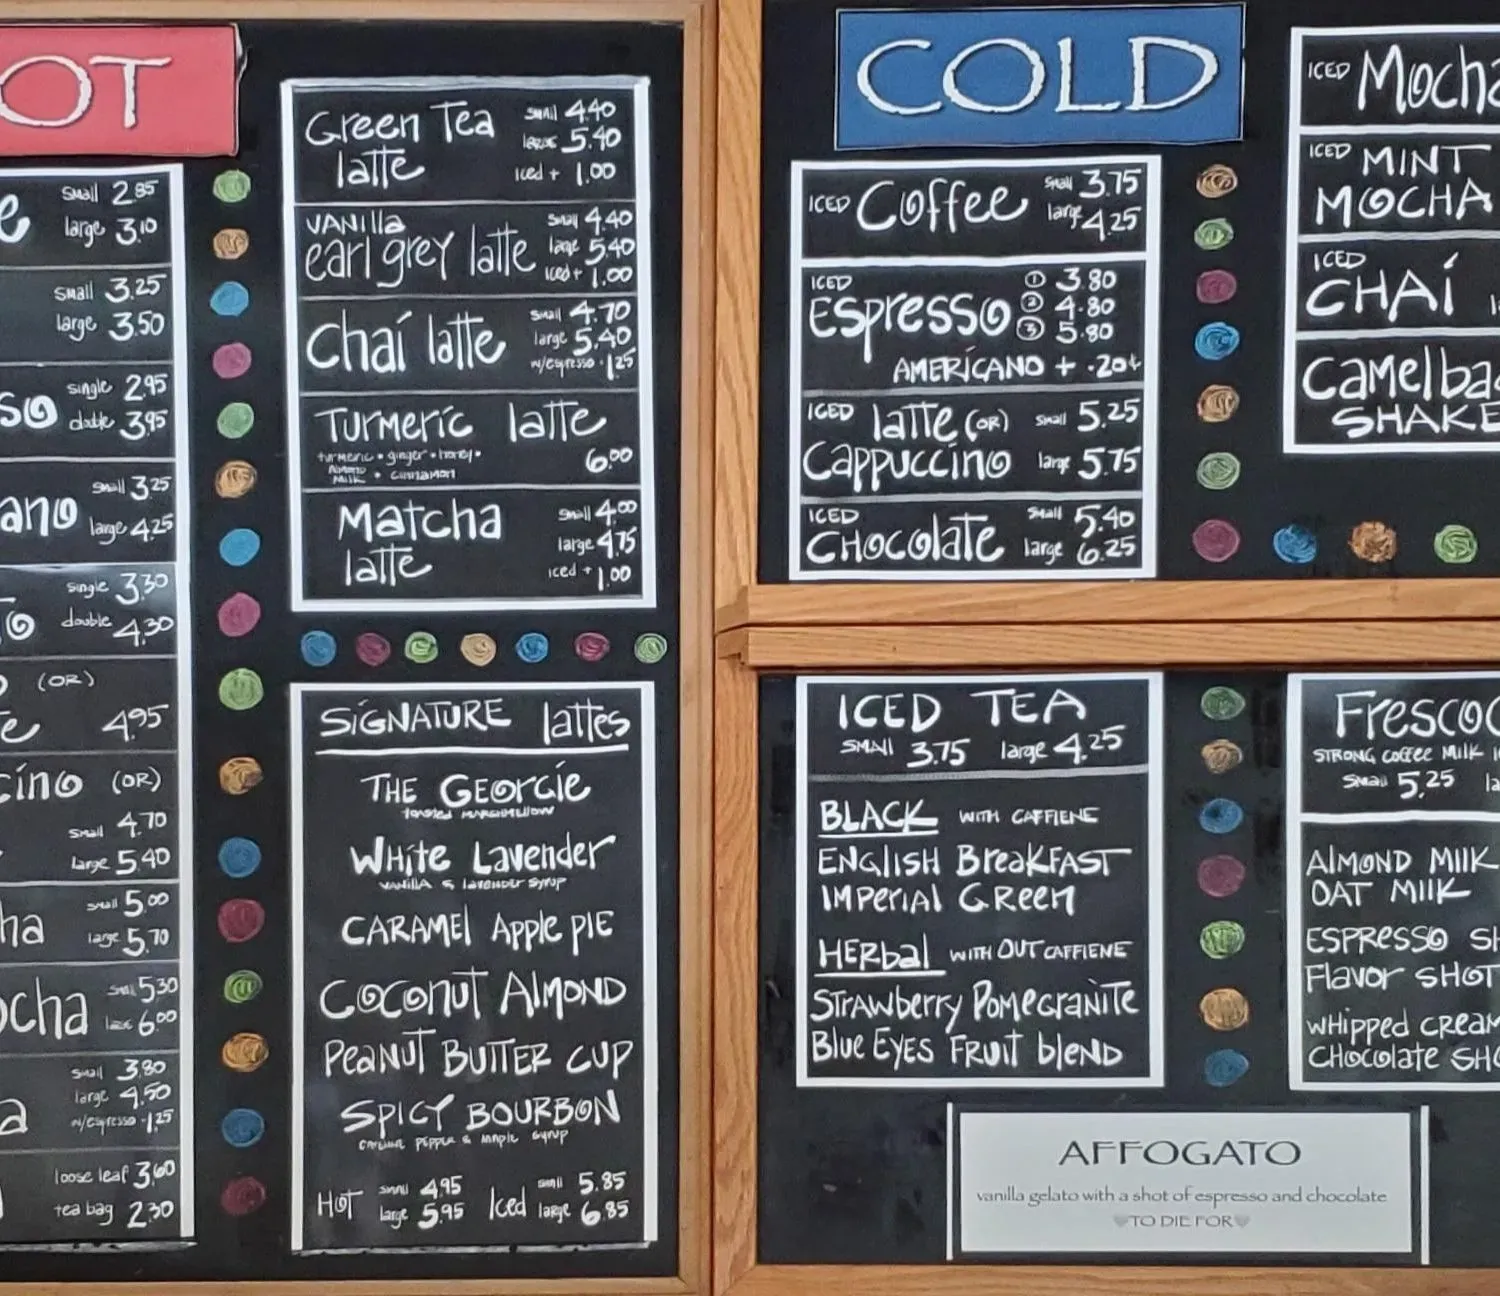 OT
e small 2.85
large 3.10
small 3.25
large 3.50
so single 2.95
double 3.95
ano small 3.25
large 4.25
o single 3.30
double 4.30
(OR)
e 4.95
cino (OR)
small 4.70
large 5.40
ha small 5.00
large 5.70
ocha small 5.30
large 6.00
small 3.80
a large 4.50
w/espresso .1.25
loose leaf 3.60
tea bag 2.30
Green Tea small 4.40
latte large 5.40
iced + 1.00
VANIlla small 4.40
earl grey latte large 5.40
iced + 1.00
Chai latte small 4.70
large 5.40
w/espresso .1.25
Turmeric latte
turmeric • ginger • honey •
Almond
Milk • cinnamon
6.00
Matcha small 4.00
latte large 4.75
iced + 1.00
SIGNATURE lattes
THE GEOrGie
toasted marshmallow
White Lavender
vanilla & lavender syrup
CARAMEl Apple pIE
Coconut Almond
Peanut Butter cup
SPICY BOURBON
pepper & maple syrup
Hot small 4.95 Iced small 5.85
large 5.95 large 6.85
COLD
ICED Coffee small 3.75
large 4.25
ICED
Espresso ① 3.80
② 4.80
③ 5.80
AMERICANO + .20¢
ICED latte (OR) small 5.25
Cappuccino large 5.75
ICED small 5.40
CHocolate large 6.25
ICED Mocha
ICED MINT
MOCHA
ICED
CHAI
Camelba
SHAKE
ICED TEA
SMAll 3.75 large 4.25
BLACK WITH CAFFIENE
ENGlISH BreaKFAST
IMPerIAl Green
HERBal WITH OUT CAFFIENE
Strawberry Pomegranite
Blue Eyes Fruit blend
Fresco
STRONG COFFEE MILK
Small 5.25 la
Almond MIlk
OAT MIlk
ESPRESSO SH
Flavor SHOT
whipped cream
CHocolate SHO
AFFOGATO
vanilla gelato with a shot of espresso and chocolate
TO DIE FOR